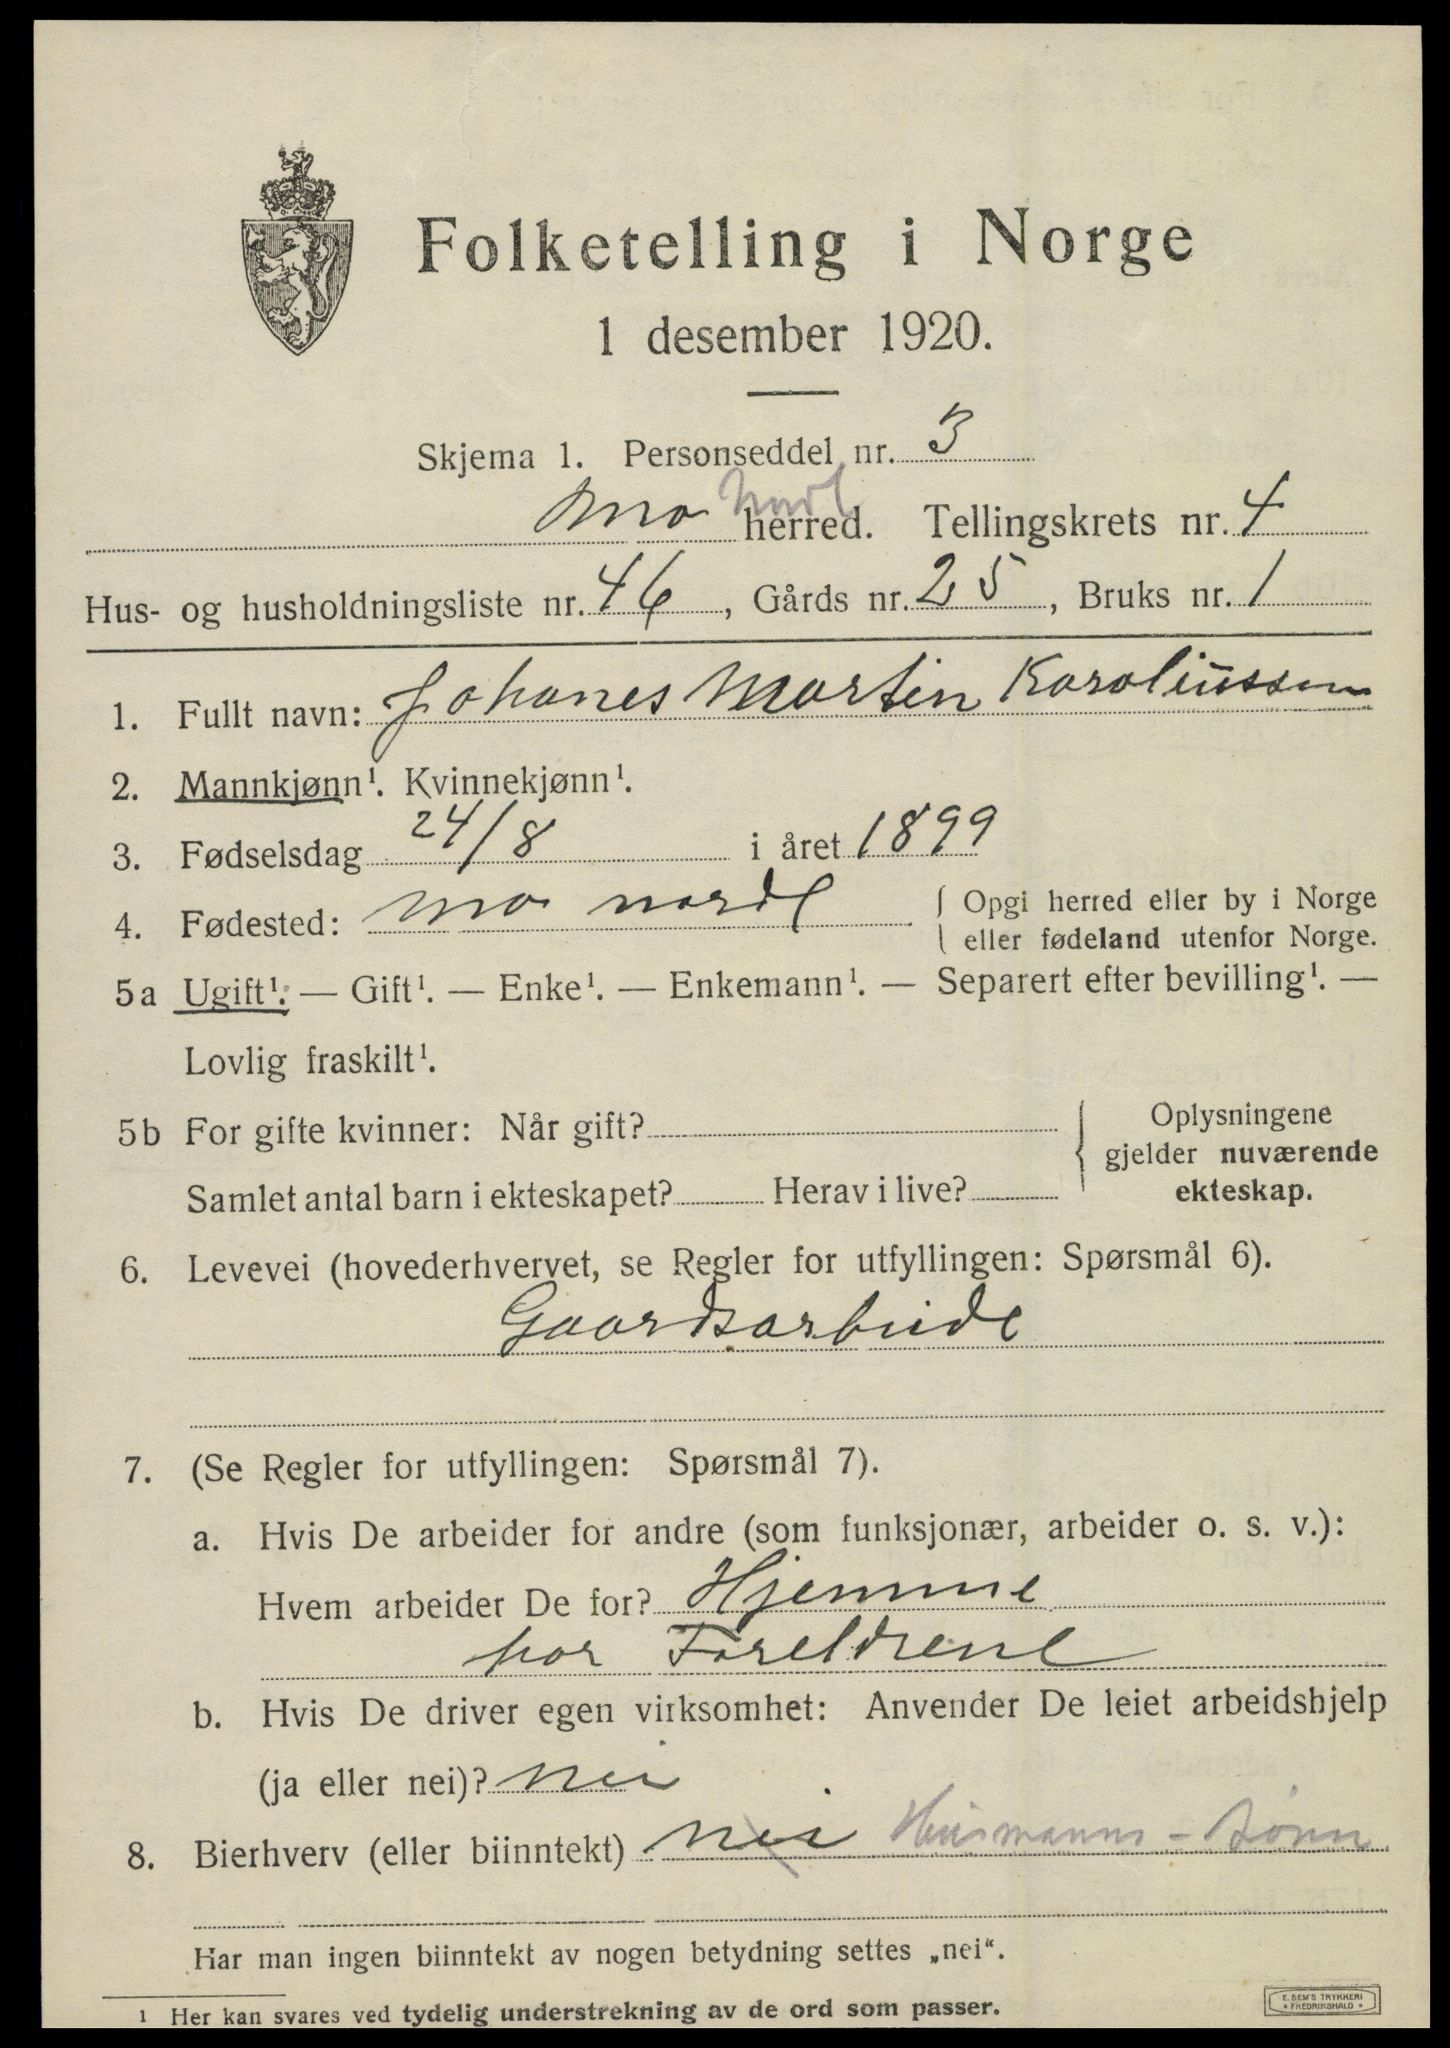 Folketelling i Norge
1 desember 1920.
Skjema 1. Personseddel nr. 3
Mo Nordl herred. Tellingskrets nr. 4
Hus- og husholdningsliste nr. 46, Gårds nr. 25, Bruks nr. 1
1. Fullt navn: Johanes Martin Karoliussen
2. Mannkjønn¹. Kvinnekjønn¹.
3. Fødselsdag 24/8 i året 1899
4. Fødested: Mo nordl { Opgi herred eller by i Norge
eller fødeland utenfor Norge.
5a Ugift¹. — Gift¹. — Enke¹. — Enkemann¹. — Separert efter bevilling¹. —
Lovlig fraskilt¹.
5b For gifte kvinner: Når gift? { Oplysningene
gjelder nuværende
Samlet antal barn i ekteskapet? Herav i live? ekteskap.
6. Levevei (hovederhvervet, se Regler for utfyllingen: Spørsmål 6).
Gaardsarbeide
7. (Se Regler for utfyllingen: Spørsmål 7).
a. Hvis De arbeider for andre (som funksjonær, arbeider o. s. v.):
Hvem arbeider De for? Hjemme
hos Foreldrene
b. Hvis De driver egen virksomhet: Anvender De leiet arbeidshjelp
(ja eller nei)? nei
8. Bierhverv (eller biinntekt) nei Husmanns-sønn
Har man ingen biinntekt av nogen betydning settes „nei“.
1 Her kan svares ved tydelig understrekning av de ord som passer.
E. SEM'S TRYKKERI
FREDRIKSHALD